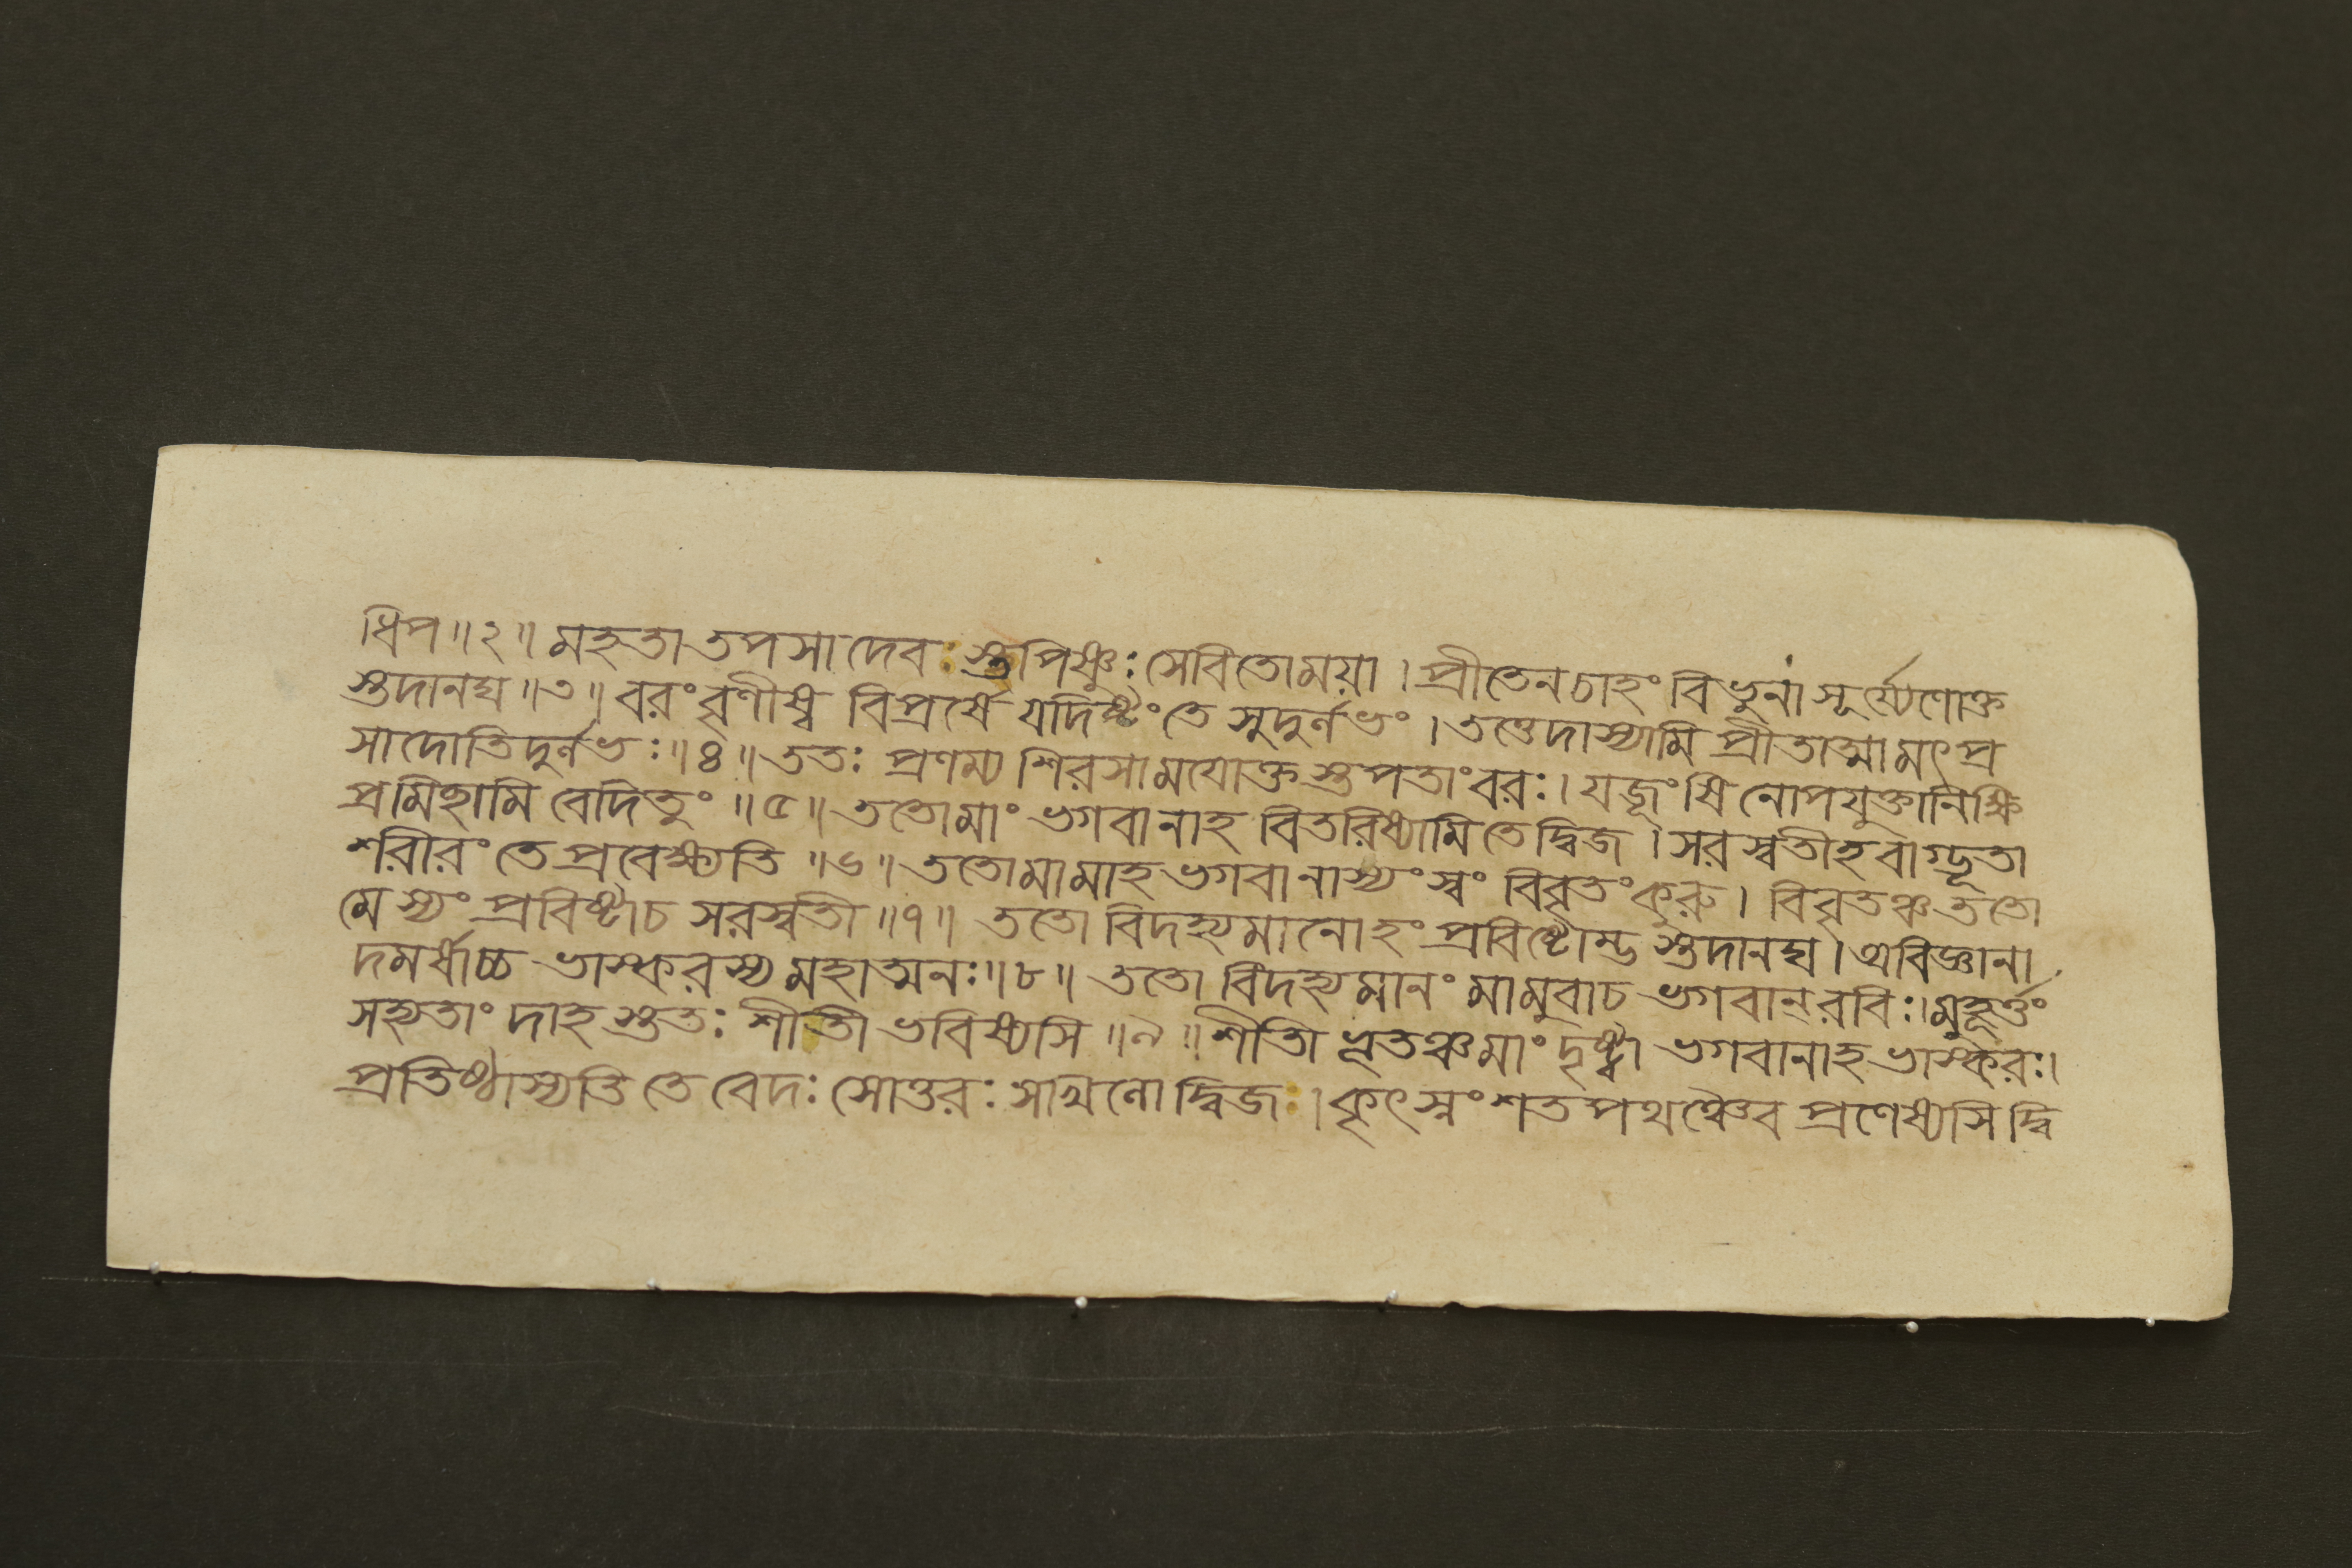 ধিপ ॥ ২ ॥ মহতা তপসা দেবঃ স্তপিষ্ণুঃ সেবিতো ময়া । প্রীতেন চাহং বিভুনা সূর্য্যেণোক্ত
স্তদানঘ ॥ ৩ ॥ বরং বৃণীষ্ব বিপ্রর্ষে যদিষ্টং তে সুদুর্লভং । তত্তেদাস্যামি প্রীতাত্মা মৎপ্র
সাদোতিদুর্লভঃ ॥ ৪ ॥ ততঃ প্রণম্য শিরসা ময়োক্ত স্তপতাংবরঃ । যজূংষি নোপযুক্তানি ক্ষি
প্রমিছামি বেদিতুং ॥ ৫ ॥ ততোমাং ভগবানাহ বিতরিষ্যামি তে দ্বিজ । সরস্বতীহ বাগ্ভূতা
শরীরং তে প্রবেক্ষ্যতি ॥ ৬ ॥ ততোমামাহ ভগবানাস্যং স্বং বিবৃতং কুরু । বিবৃতঞ্চ ততো
মেস্যং প্রবিষ্টাচ সরস্বতী ॥ ৭ ॥ ততো বিদহ্যমানোহং প্রবিষ্টোম্ভ স্তদানঘ । অবিজ্ঞানা
দমর্ষাচ্চ ভাস্করস্য মহাত্মনঃ ॥ ৮ ॥ ততো বিদহ্যমানং মামুবাচ ভগবান্রবিঃ । মুহূর্ত্তং
সহ্যতাং দাহ স্ততঃ শীতী ভবিষ্যসি ॥ ৯ ॥ শীতী ভূতঞ্চমাং দৃষ্ট্বা ভগবানাহ ভাস্করঃ ।
প্রতিষ্ঠাস্যতি তে বেদঃ সোত্তরঃ সাখিলো দ্বিজঃ । কৃৎস্নং শতপথঞ্চৈব প্রণেষ্যসি দ্বি